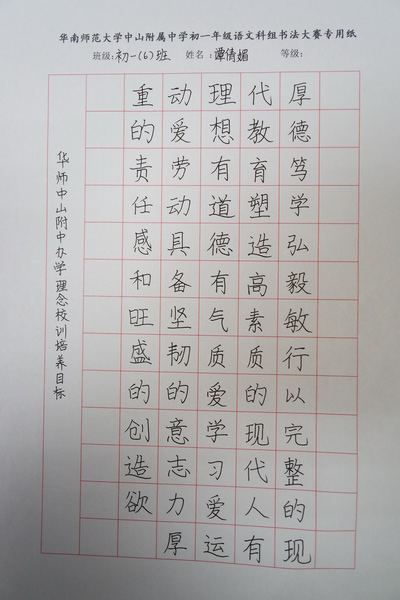 华南师范大学中山附属中学初一年级语文科组书法大赛专用纸
班级:初一(6)班 姓名:谭倩媚 等级:
厚德笃学弘毅敏行以完整的现
代教育塑造高素质的现代人有
理想有道德有气质爱学习爱运
动爱劳动具备坚韧的意志力厚
重的责任感和旺盛的创造欲
华师中山附中办学理念校训培养目标